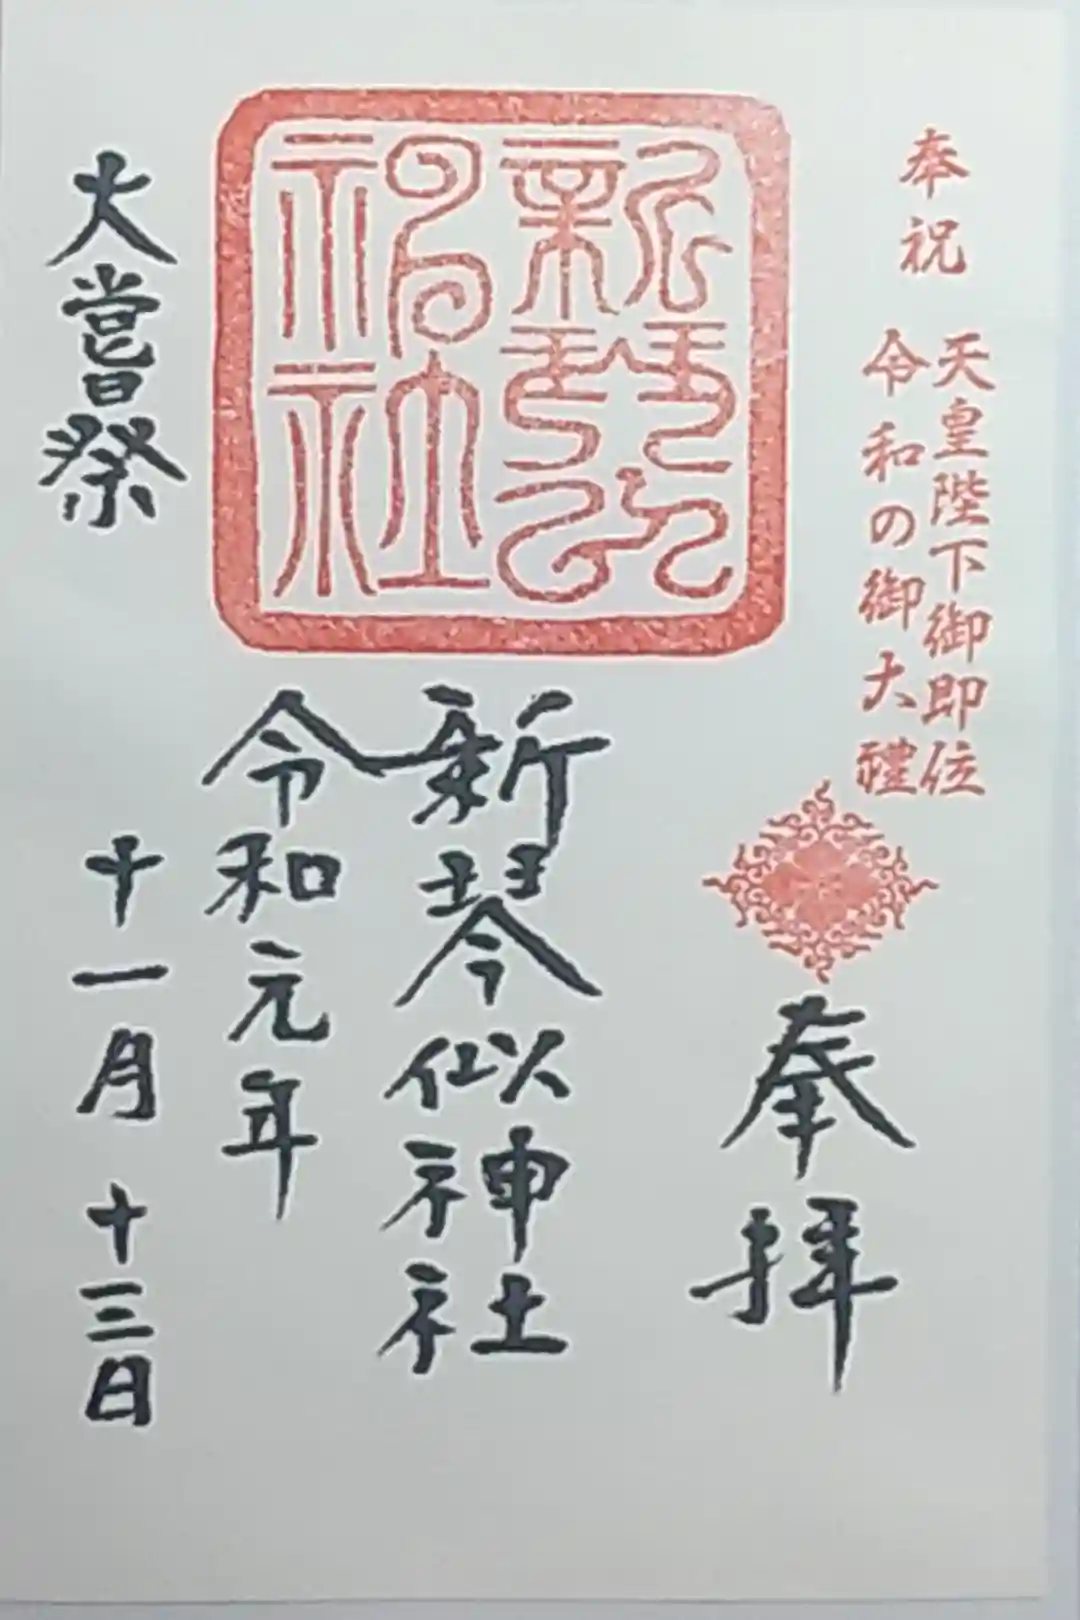 奉祝
天皇陛下御即位
令和の御大禮
奉拝
新琴似
神社
新琴似神社
令和元年
大嘗祭
十一月十三日